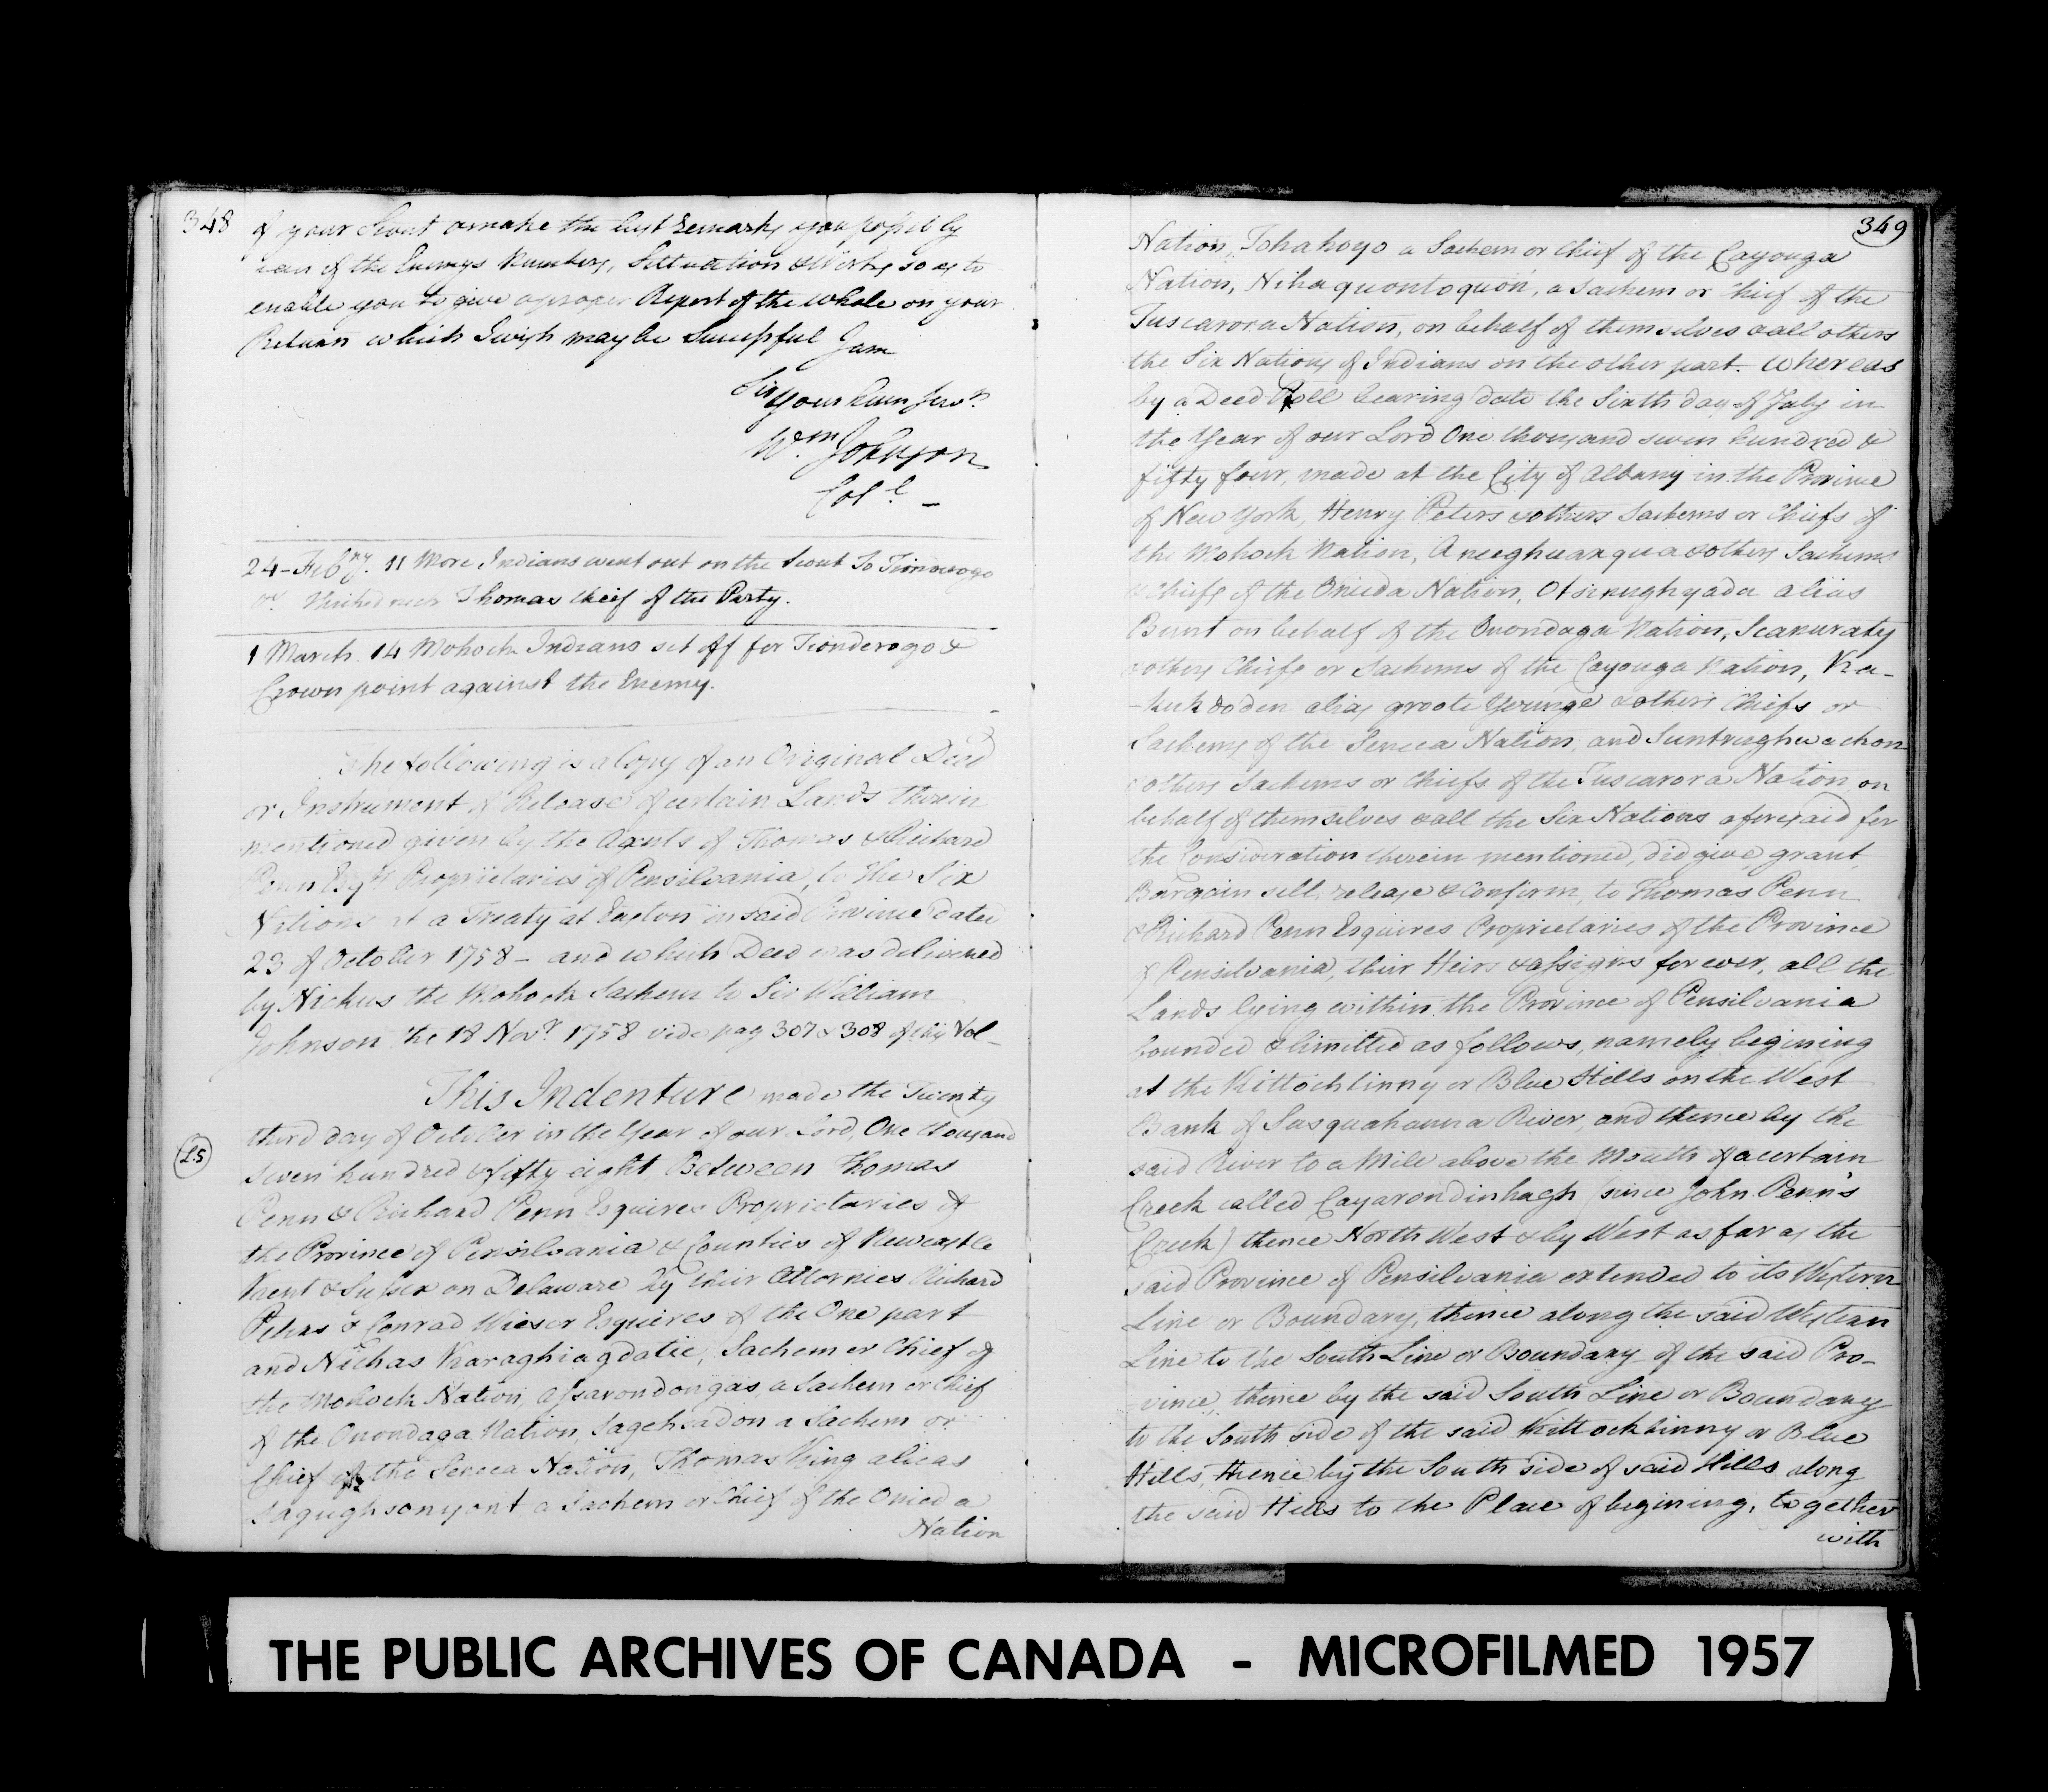 348
of your Scout & make the best Remarks you possibly
can of the Enemys Numbers, Situation & Works so as to
enable you to give a proper Report of the whole on your
Return which I wish may be Successful I am
Sir
Your hum Serv.t
W.m Johnson
Col.l —
24 - Feb.ry 11 More Indians went out on the Scout To Tionderogo
Thomas Cheif of the Party.
1 March. 14 Mohock Indians set off for Tionderogo &
Crown point against the Enemy.
The following is a Copy of an Original Deed
or Instrument of Release of certain Lands therein
mentioned given by the Agents of Thomas & Richard
Penn Esq.rs Proprietaries of Pensilvania, to the Six
Nations at a Treaty at Easton in said Province dated
23 of October 1758 - and which Deed was delivered
by Nichus the Mohock Sachem to Sir William
Johnson the 18 Nov.r 1758 vide pag 307 & 308 of this Vol -
This Indenture made the Twenty
third day of October in the Year of our Lord, One thousand
L.S
seven hundred & fifty eight Between Thomas
Penn & Richard Penn Esquires Proprietaries of
the Province of Pensilvania & Counties of Newcastle
Kent & Sussex on Delaware by their Attornies Richard
Peters & Conrad Wieser Esquires of the One part
and Nichas Karaghiagdatie, Sachem or Chief of
the Mohock Nation, Assarondongas, a Sachem or Chief
of the Onondaga Nation, Sagehsadon a Sachem or
Chief of the Seneca Nation, Thomas King alias
Sagughsonyont a Sachem or Chief of the Onieda
Nation
349
Nation, Tohahoyo a Sachem or Chief of the Cayouga
Nation, Nihaquontoquon, a Sachem or Chief of the
Tuscarora Nation, on behalf of themselves & all others
the Six Nations of Indians on the other part. Whereas
by a Deed Poll bearing date the Sixth day of July in
the Year of our Lord One thousand seven hundred &
fifty four, made at the City of Albany in the Province
of New York, Henry Peters & others Sachems or Chiefs of
the Mohock Nation, Aneeghnaxqua & others Sachems
& Chiefs of the Onieda Nation, Otsinughyada alias
Bunt on behalf of the Onondaga Nation, Scanuraty
& others Chiefs or Sachems of the Cayouga Nation, Ka-
-hichdoden alias groote Younge & others Chiefs or
Sachems of the Seneca Nation, and Suntrughwachon
& others Sachems or Chiefs of the Tuscarora Nation, on
behalf of themselves & all the Six Nations aforesaid for
the Consideration therein mentioned, did give, grant,
Bargain sell release & confirm, to Thomas Penn
& Richard Penn Esquires Proprietaries of the Province
of Pensilvania, their Heirs & assigns forever, all the
Lands lying within the Province of Pensilvania
bounded & limitted as follows, namely begining
at the Kittochtinny or Blue Hills on the West
Bank of Susquahanna River, and thence by the
said River to a Mile above the Mouth of a certain
Creek called Cayarondinhagh (since John Penn's
Creek) thence North West & by West as far as the
said Province of Pensilvania extended to its Western
Line or Boundary, thence along the said Western
Line to the South Line or Boundary of the said Pro-
-vince, thence by the said South Line or Boundary
to the South side of the said Kittochtinny or Blue
Hills, thence by the South side of said Hills along
the said Hills to the Place of begining, together
with
THE PUBLIC ARCHIVES OF CANADA - MICROFILMED 1957